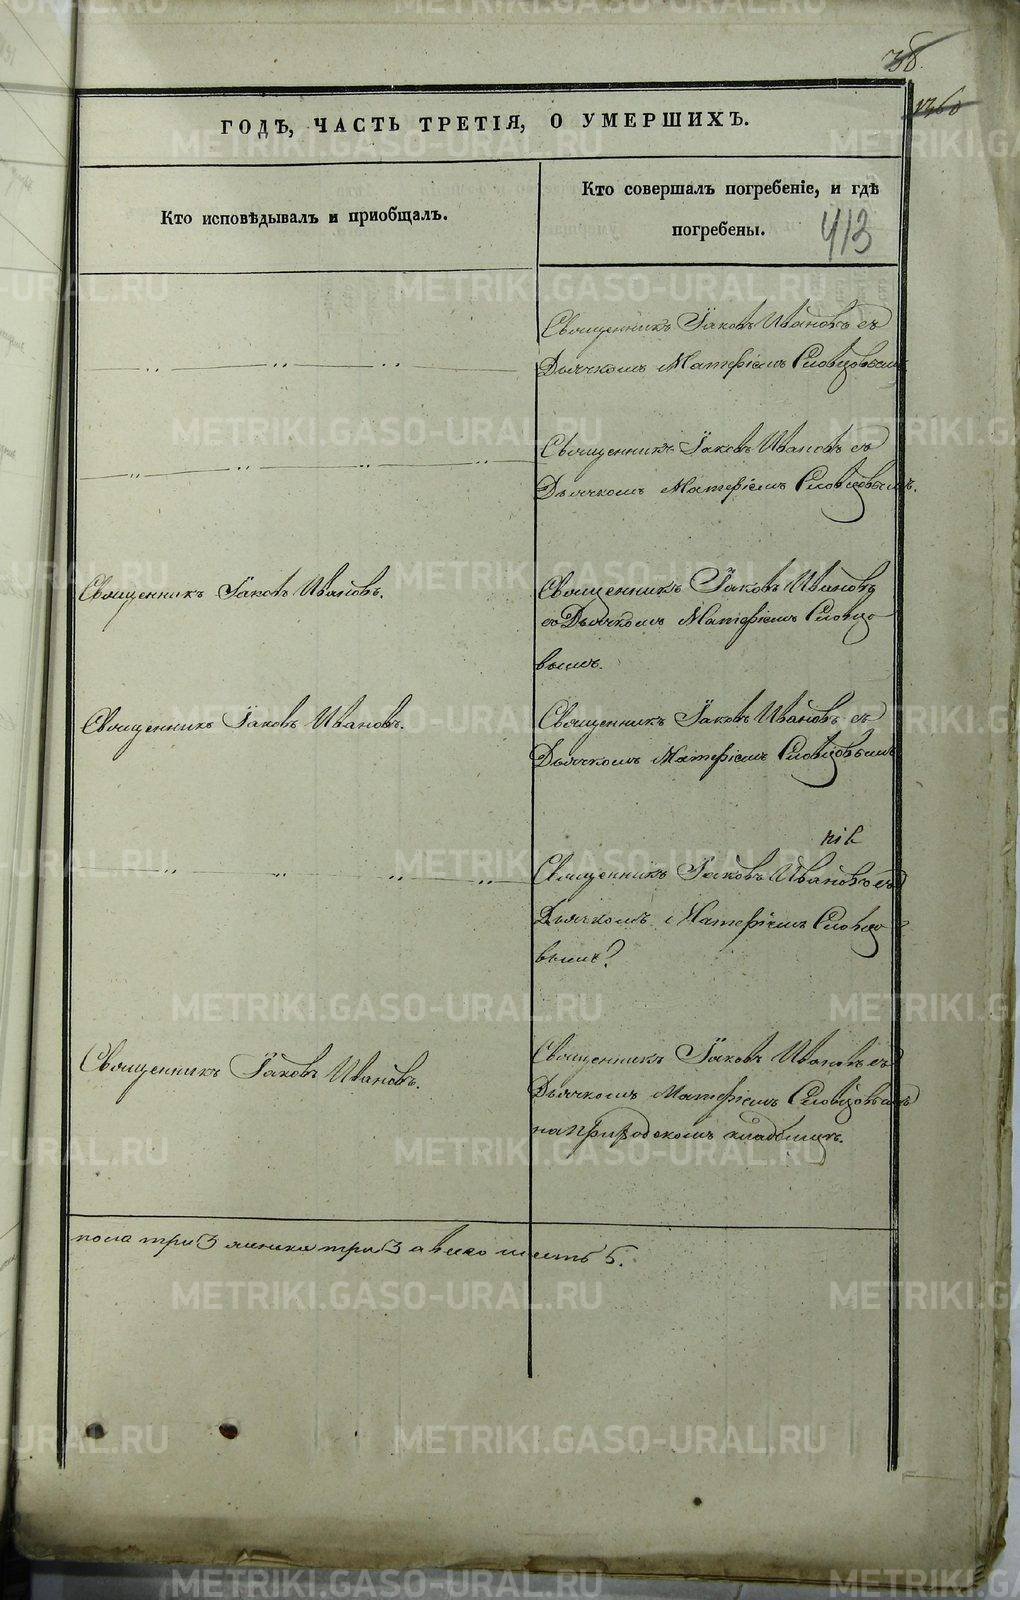 38
1360
ГОДЪ, ЧАСТЬ ТРЕТІЯ, О УМЕРШИХЪ.
Кто исповѣдывалъ и приобщалъ.
Кто совершалъ погребеніе, и гдѣ
погребены.
413
Священникъ Іаковъ Ивановъ съ
Дьячкомъ Матфіемъ Словцовымъ
Священникъ Іаковъ Ивановъ съ
Дьячкомъ Матфіемъ Словцовымъ.
Священникъ Іаковъ Ивановъ.
Священникъ Іаковъ Ивановъ
съ Дьячкомъ Матфіемъ Словцо
вымъ.
Священникъ Іаковъ Ивановъ.
Священникъ Іаковъ Ивановъ съ
Дьячкомъ Матфіемъ Словцовымъ
Священникъ Іаковъ Ивановъ съ
Дьячкомъ Матфіемъ Словцо
вымъ
Священникъ Іаковъ Ивановъ.
Священникъ Іаковъ Ивановъ съ
Дьячкомъ Матфіемъ Словцовымъ
на кладбищѣ.
пола три 3 женска три 3 а всего шесть 6.
METRIKI.GASO-URAL.RU